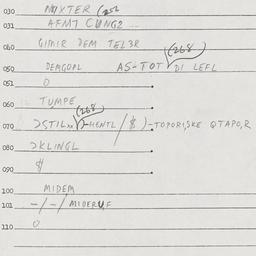 030 MIXTER (252
031 AFMT CUNG2
040 GIMIR DEM TEL3R
(268
050 DEMGOPL AS-TOT DI LEFL
051 O
060 TUMPE
(268
070 >STIL )-HENTL / $ )-TOPORI,SKE QTAPO,R
080 >KLINGL
090 $
100 MIDEM
101 -/-/ MIDERUF
110 O